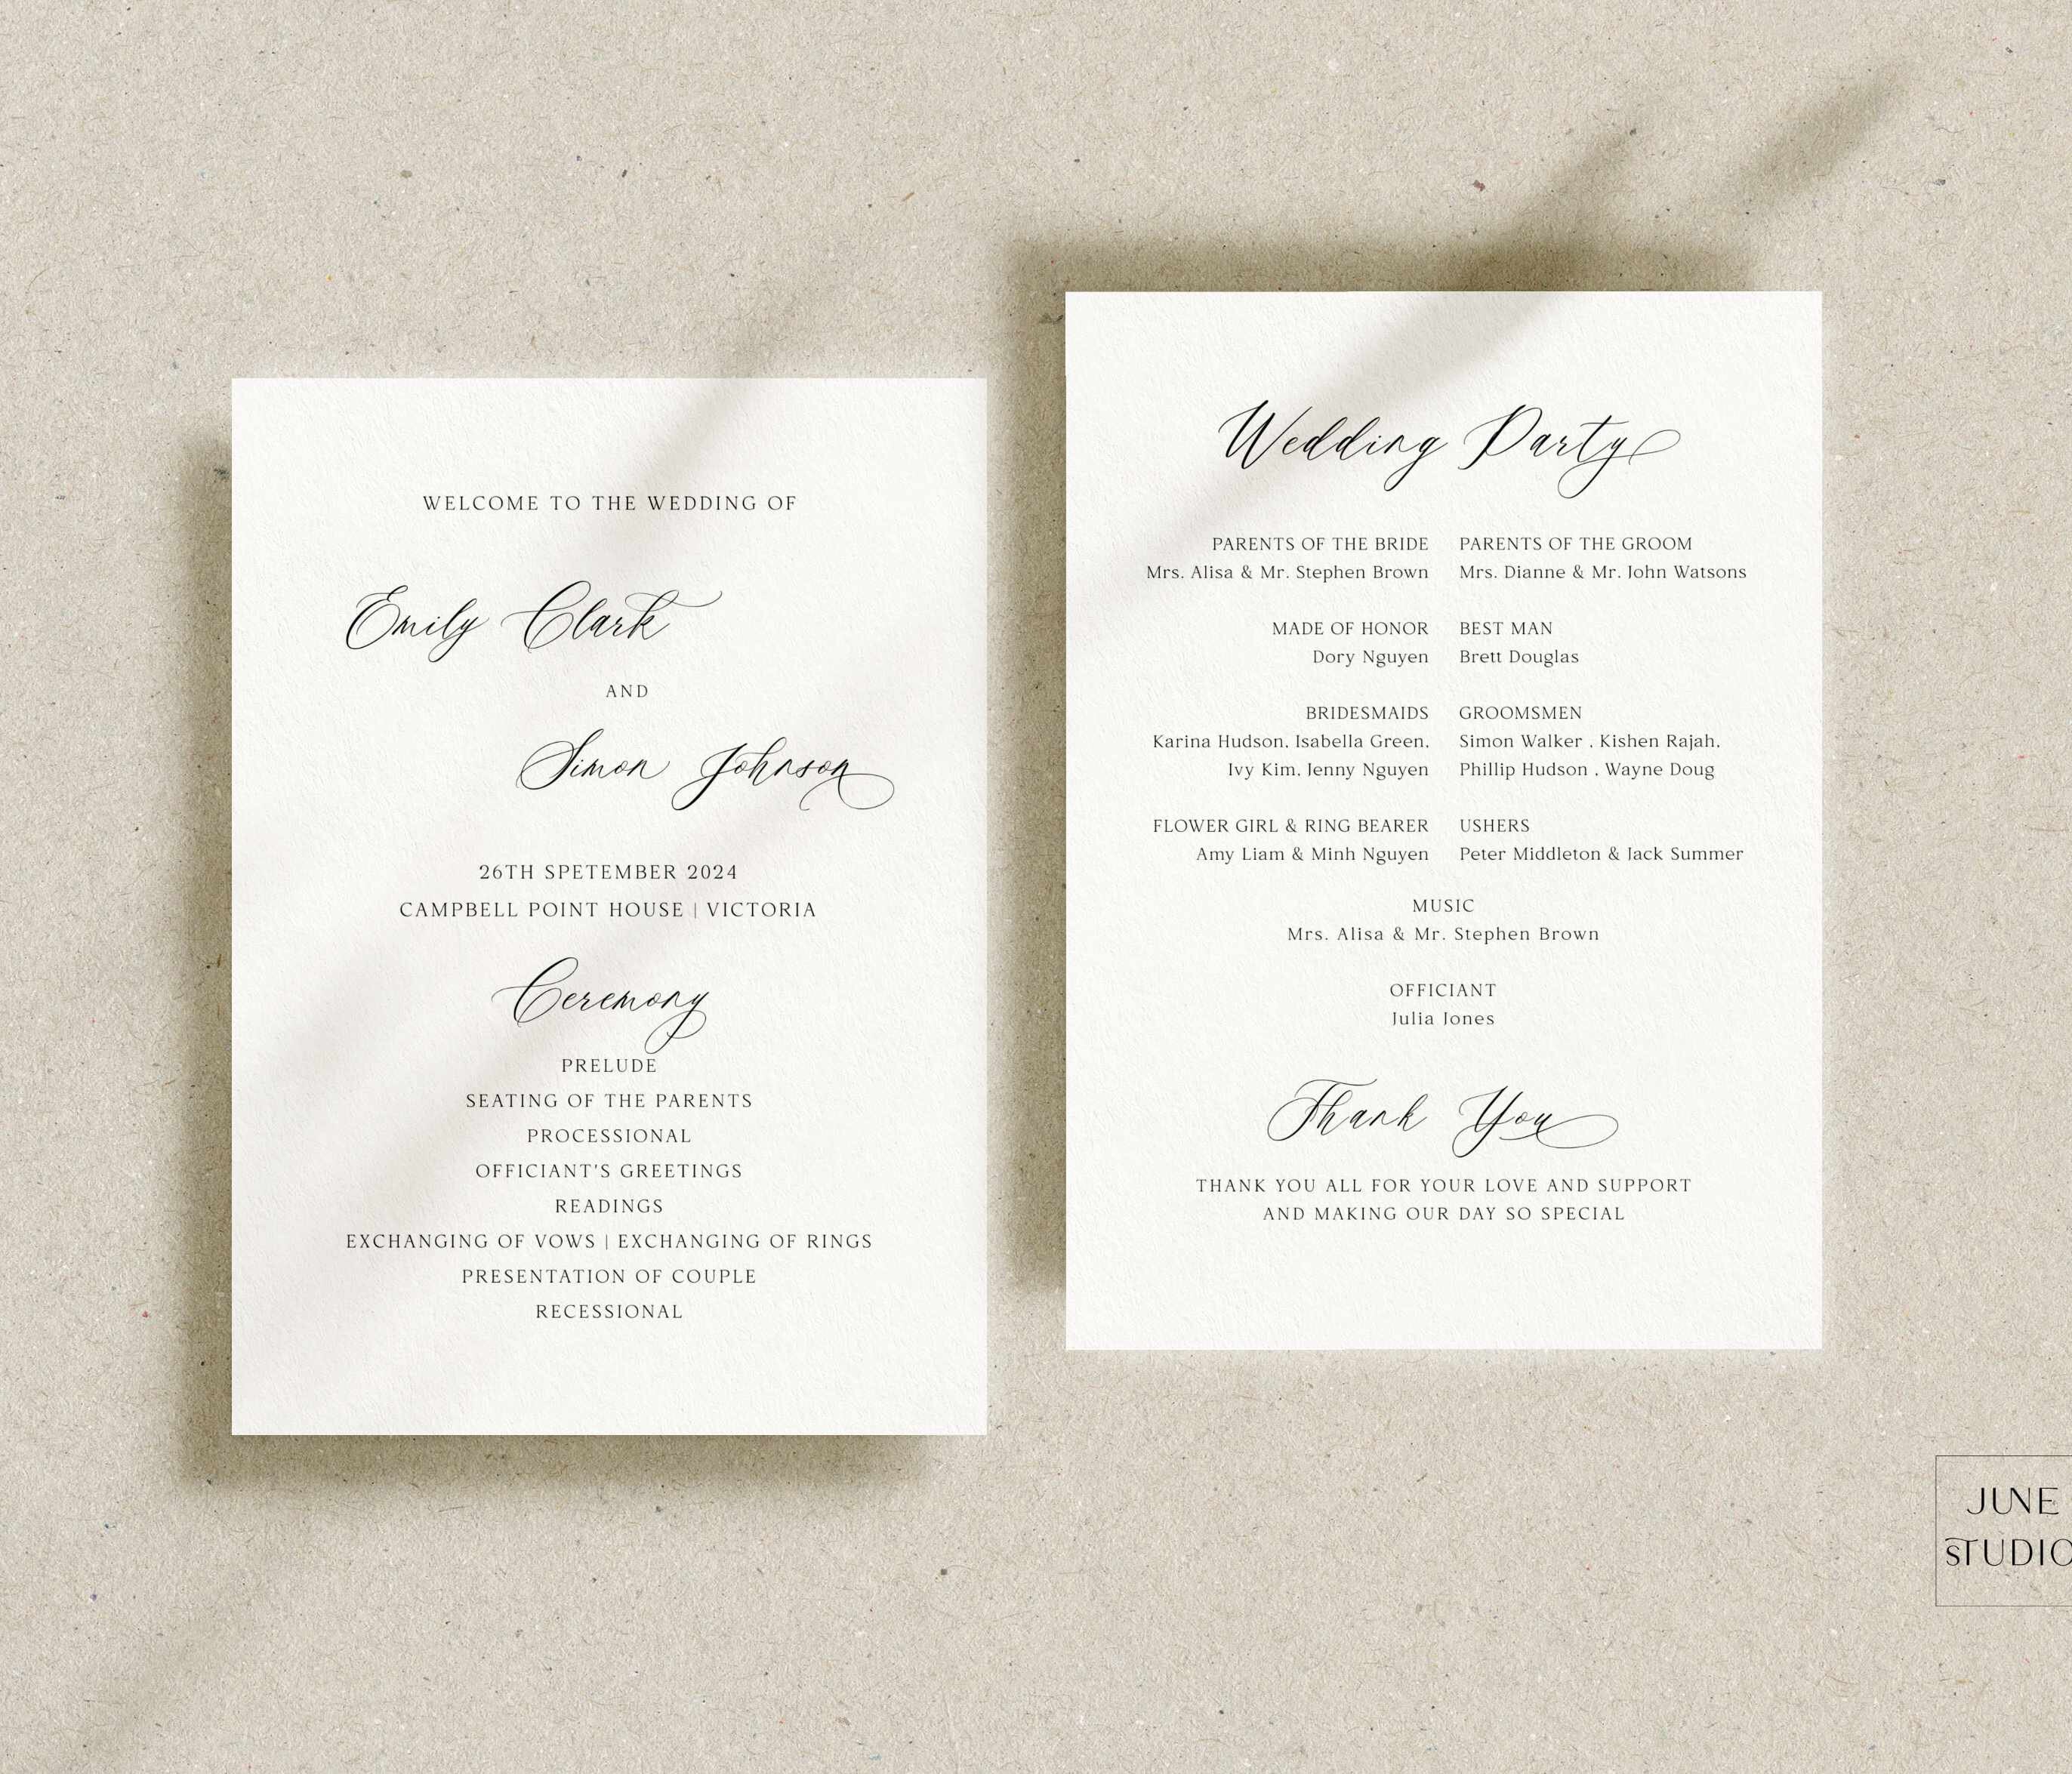 WELCOME TO THE WEDDING OF
Emily Clark
AND
Simon Johnson
26TH SPETEMBER 2024
CAMPBELL POINT HOUSE | VICTORIA
Ceremony
PRELUDE
SEATING OF THE PARENTS
PROCESSIONAL
OFFICIANT'S GREETINGS
READINGS
EXCHANGING OF VOWS | EXCHANGING OF RINGS
PRESENTATION OF COUPLE
RECESSIONAL
Wedding Party
PARENTS OF THE BRIDE
Mrs. Alisa & Mr. Stephen Brown
PARENTS OF THE GROOM
Mrs. Dianne & Mr. John Watsons
MADE OF HONOR
Dory Nguyen
BEST MAN
Brett Douglas
BRIDESMAIDS
Karina Hudson, Isabella Green,
Ivy Kim, Jenny Nguyen
GROOMSMEN
Simon Walker , Kishen Rajah,
Phillip Hudson , Wayne Doug
FLOWER GIRL & RING BEARER
Amy Liam & Minh Nguyen
USHERS
Peter Middleton & Jack Summer
MUSIC
Mrs. Alisa & Mr. Stephen Brown
OFFICIANT
Julia Jones
Thank You
THANK YOU ALL FOR YOUR LOVE AND SUPPORT
AND MAKING OUR DAY SO SPECIAL
JUNE
STUDIO